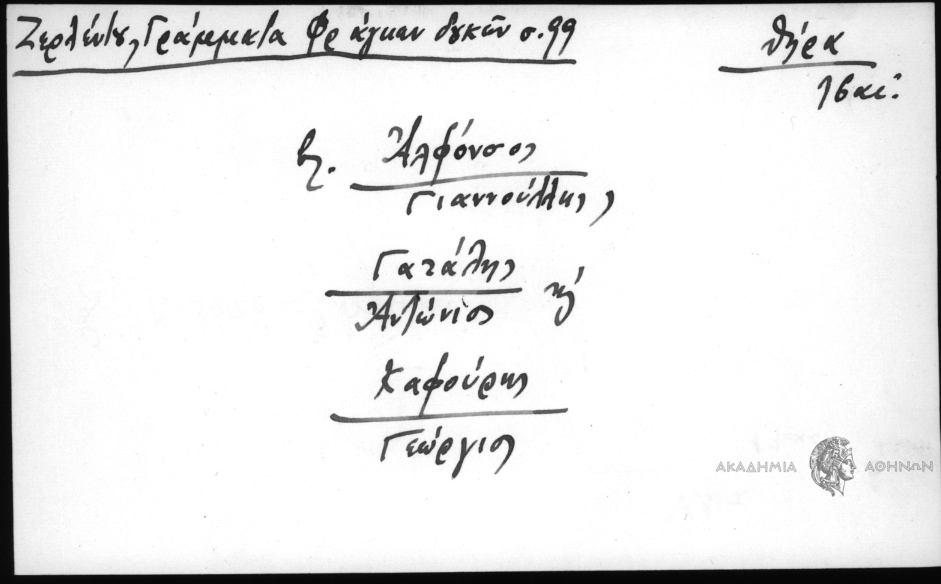 Ζερλέντου, Γράμματα Φράγκων δουκῶν σ. 99
Θήρα
16 αι.
βλ. Ἀλφόνσος
Γιαννούλλης,
Γατάλης
Ἀντώνιος κ'
Καφούρης
Γεώργιος
ΑΚΑΔΗΜΙΑ ΑΘΗΝΩΝ